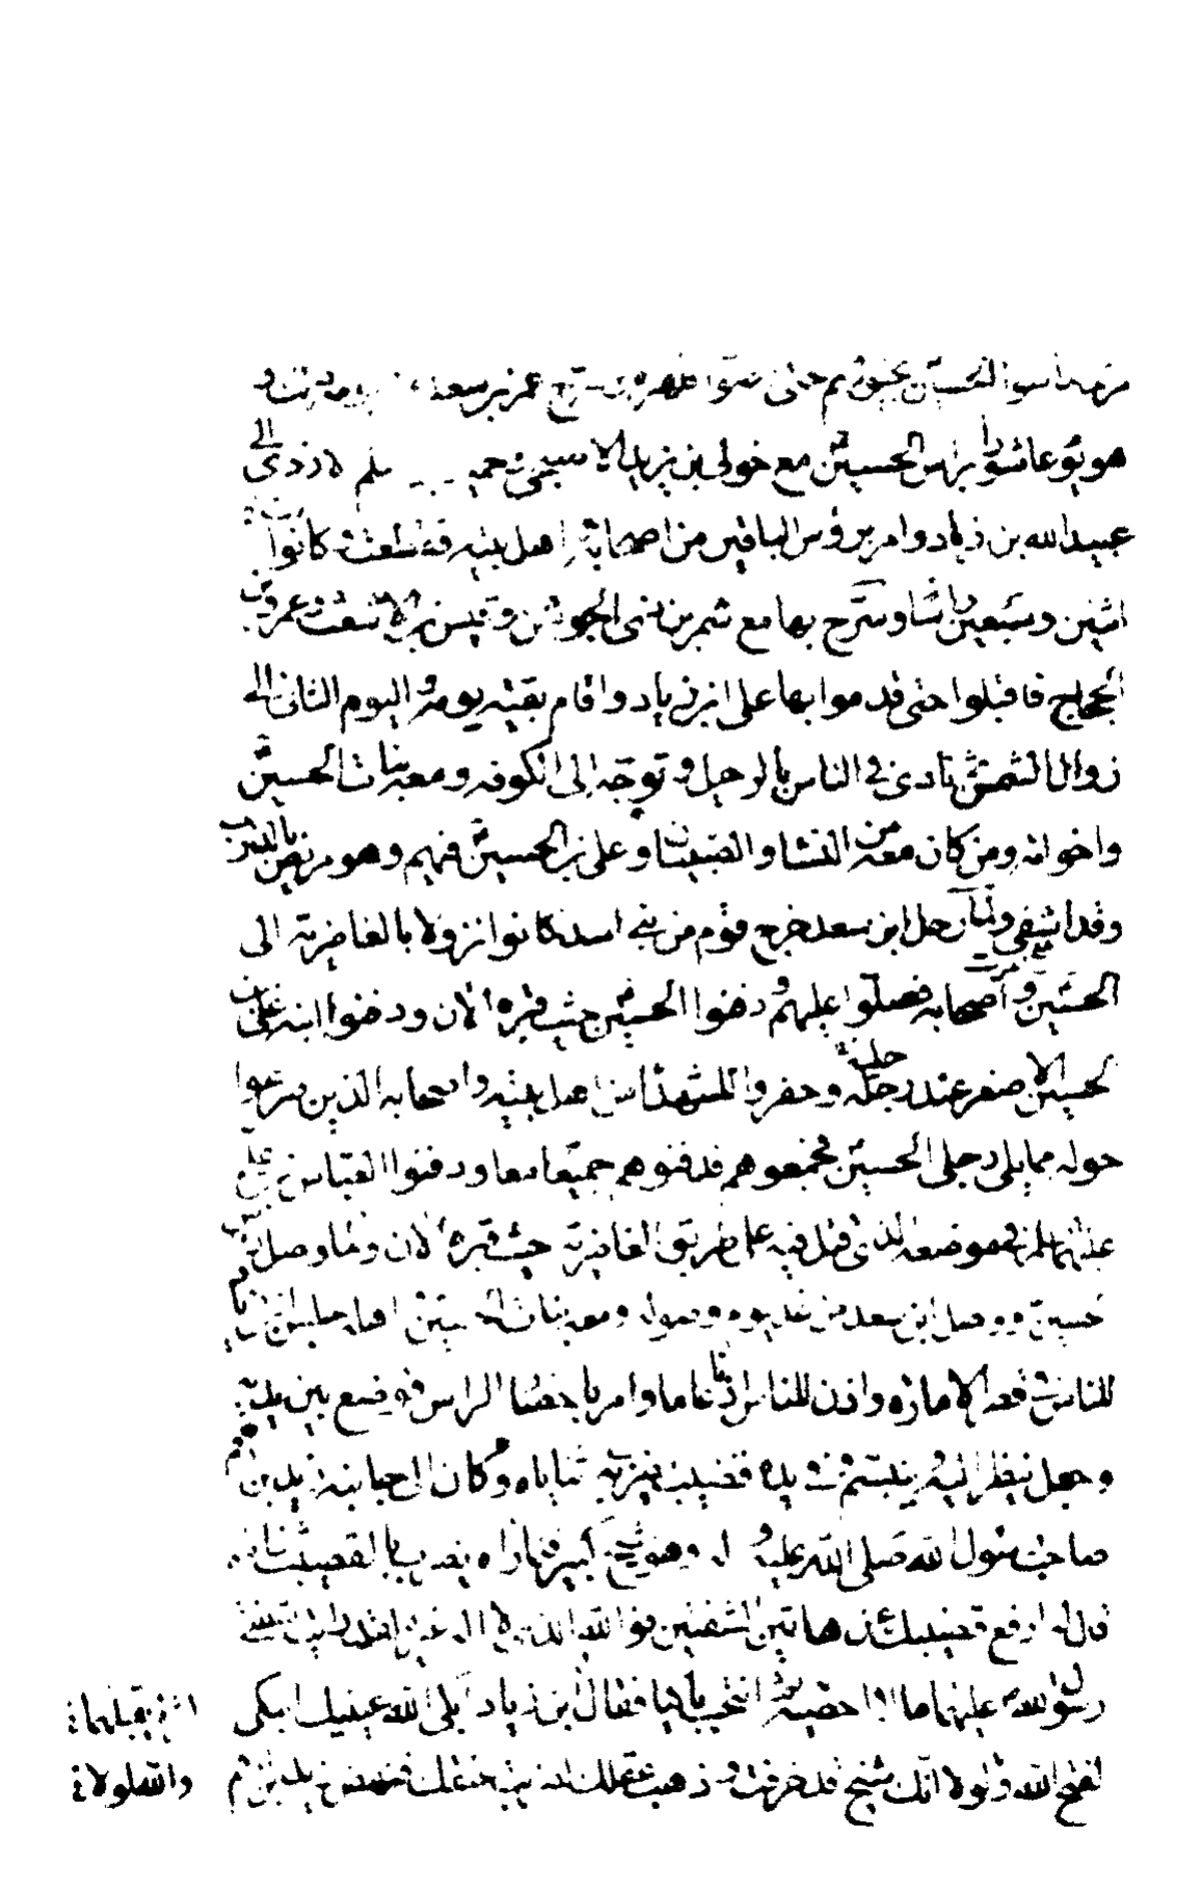 الحسين بخيولهم حتى ظهره عمر بن سعد
هو يوم عاشورا براس الحسين مع خولى بن يزيد الاصبحى مسلم الازدى الى
عبيد الله بن زياد وامر برؤس الباقين من اصحابه واهل بيته فقطعت كانوا
اثنين وسبعين راسا وسرح بها مع شمر بن ذى الجوشن وقيس بن الاشعث وعمرو بن
الحجاج فاقبلوا حتى قدموا بها على ابن زياد واقام بقيه يومه واليوم الثانى الى
زوال الشمس ثم نادى فى الناس بالرحيل وتوجه الى الكوفه ومعه بنات الحسين
واخواته ومن كان معه من النساء والصبيان وعلى بن الحسين فيهم وهو مريض بالذرب
وقد اشفى ولما رحل ابن سعد خرج قوم من بنى اسد كانوا نزولا بالغاضرية الى
الحسين واصحابه فصلوا عليهم ودفنوا الحسين حيث قبره الان ودفنوا ابنه على بن
الحسين الاصغر عند رجله وحفروا للشهداء من اهل بيته واصحابه الذين صرعوا
حوله مما يلى رجلى الحسين فجمعوهم فدفنوهم جميعا معا ودفنوا العباس بن على
عليهما السلم فى موضعه الذى قتل فيه على طريق الغاضرية حيث قبره الان ولما وصل راس
الحسين ووصل ابن سعد من غد يوم وصوله ومعه بنات الحسين واهله جلس ابن زياد
للناس فى قصر الاماره واذن للناس اذنا عاما وامر باحضار الراس فوضع بين يديه
وجعل ينظر اليه ويتبسم وفى يده قضيب يضرب به ثناياه وكان الى جانبه زيد بن ارقم
صاحب رسول الله صلى الله عليه واله وهو شيخ كبير فلما راه يضرب بالقضيب ثناياه
قال له ارفع قضيبك عن هاتين الشفتين فو الله الذى لا اله غيره لقد رايت شفتى
رسول الله عليهما ما لا احصيه ثم انتحب باكيا فقال ابن زياد ابكى الله عينيك اتبكى
لفتح الله ولولا انك شيخ قد خرفت وذهب عقلك لضربت عنقك فنهض زيد بن ارقم
يقبلهما
والله لولا